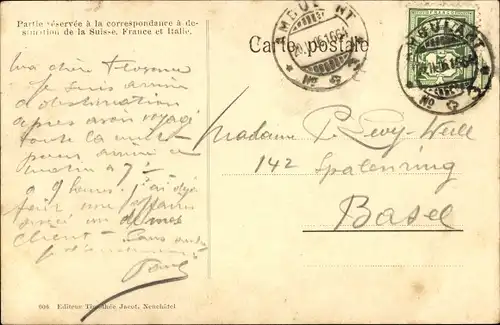 Partie réservée à la correspondance à destination de la Suisse, France et Italie.
Carte postale
AMBULANT
No
AMBULANT
No
Ma chère Florence
Je suis arrivé
à destination
après avoir voyagé
toute la nuit
pour arriver ce
matin à 7
9 heures. J'ai déjà
fait une affaire
avec un de mes
client - Sans autre
Paul
Madame P. Levy-Weill
142 Spalenring
Basel
Editeur Timothée Jacot, Neuchâtel